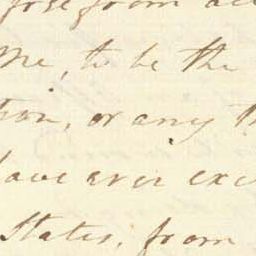 from
me, to be the
tion, or any
have ever exc
States, from